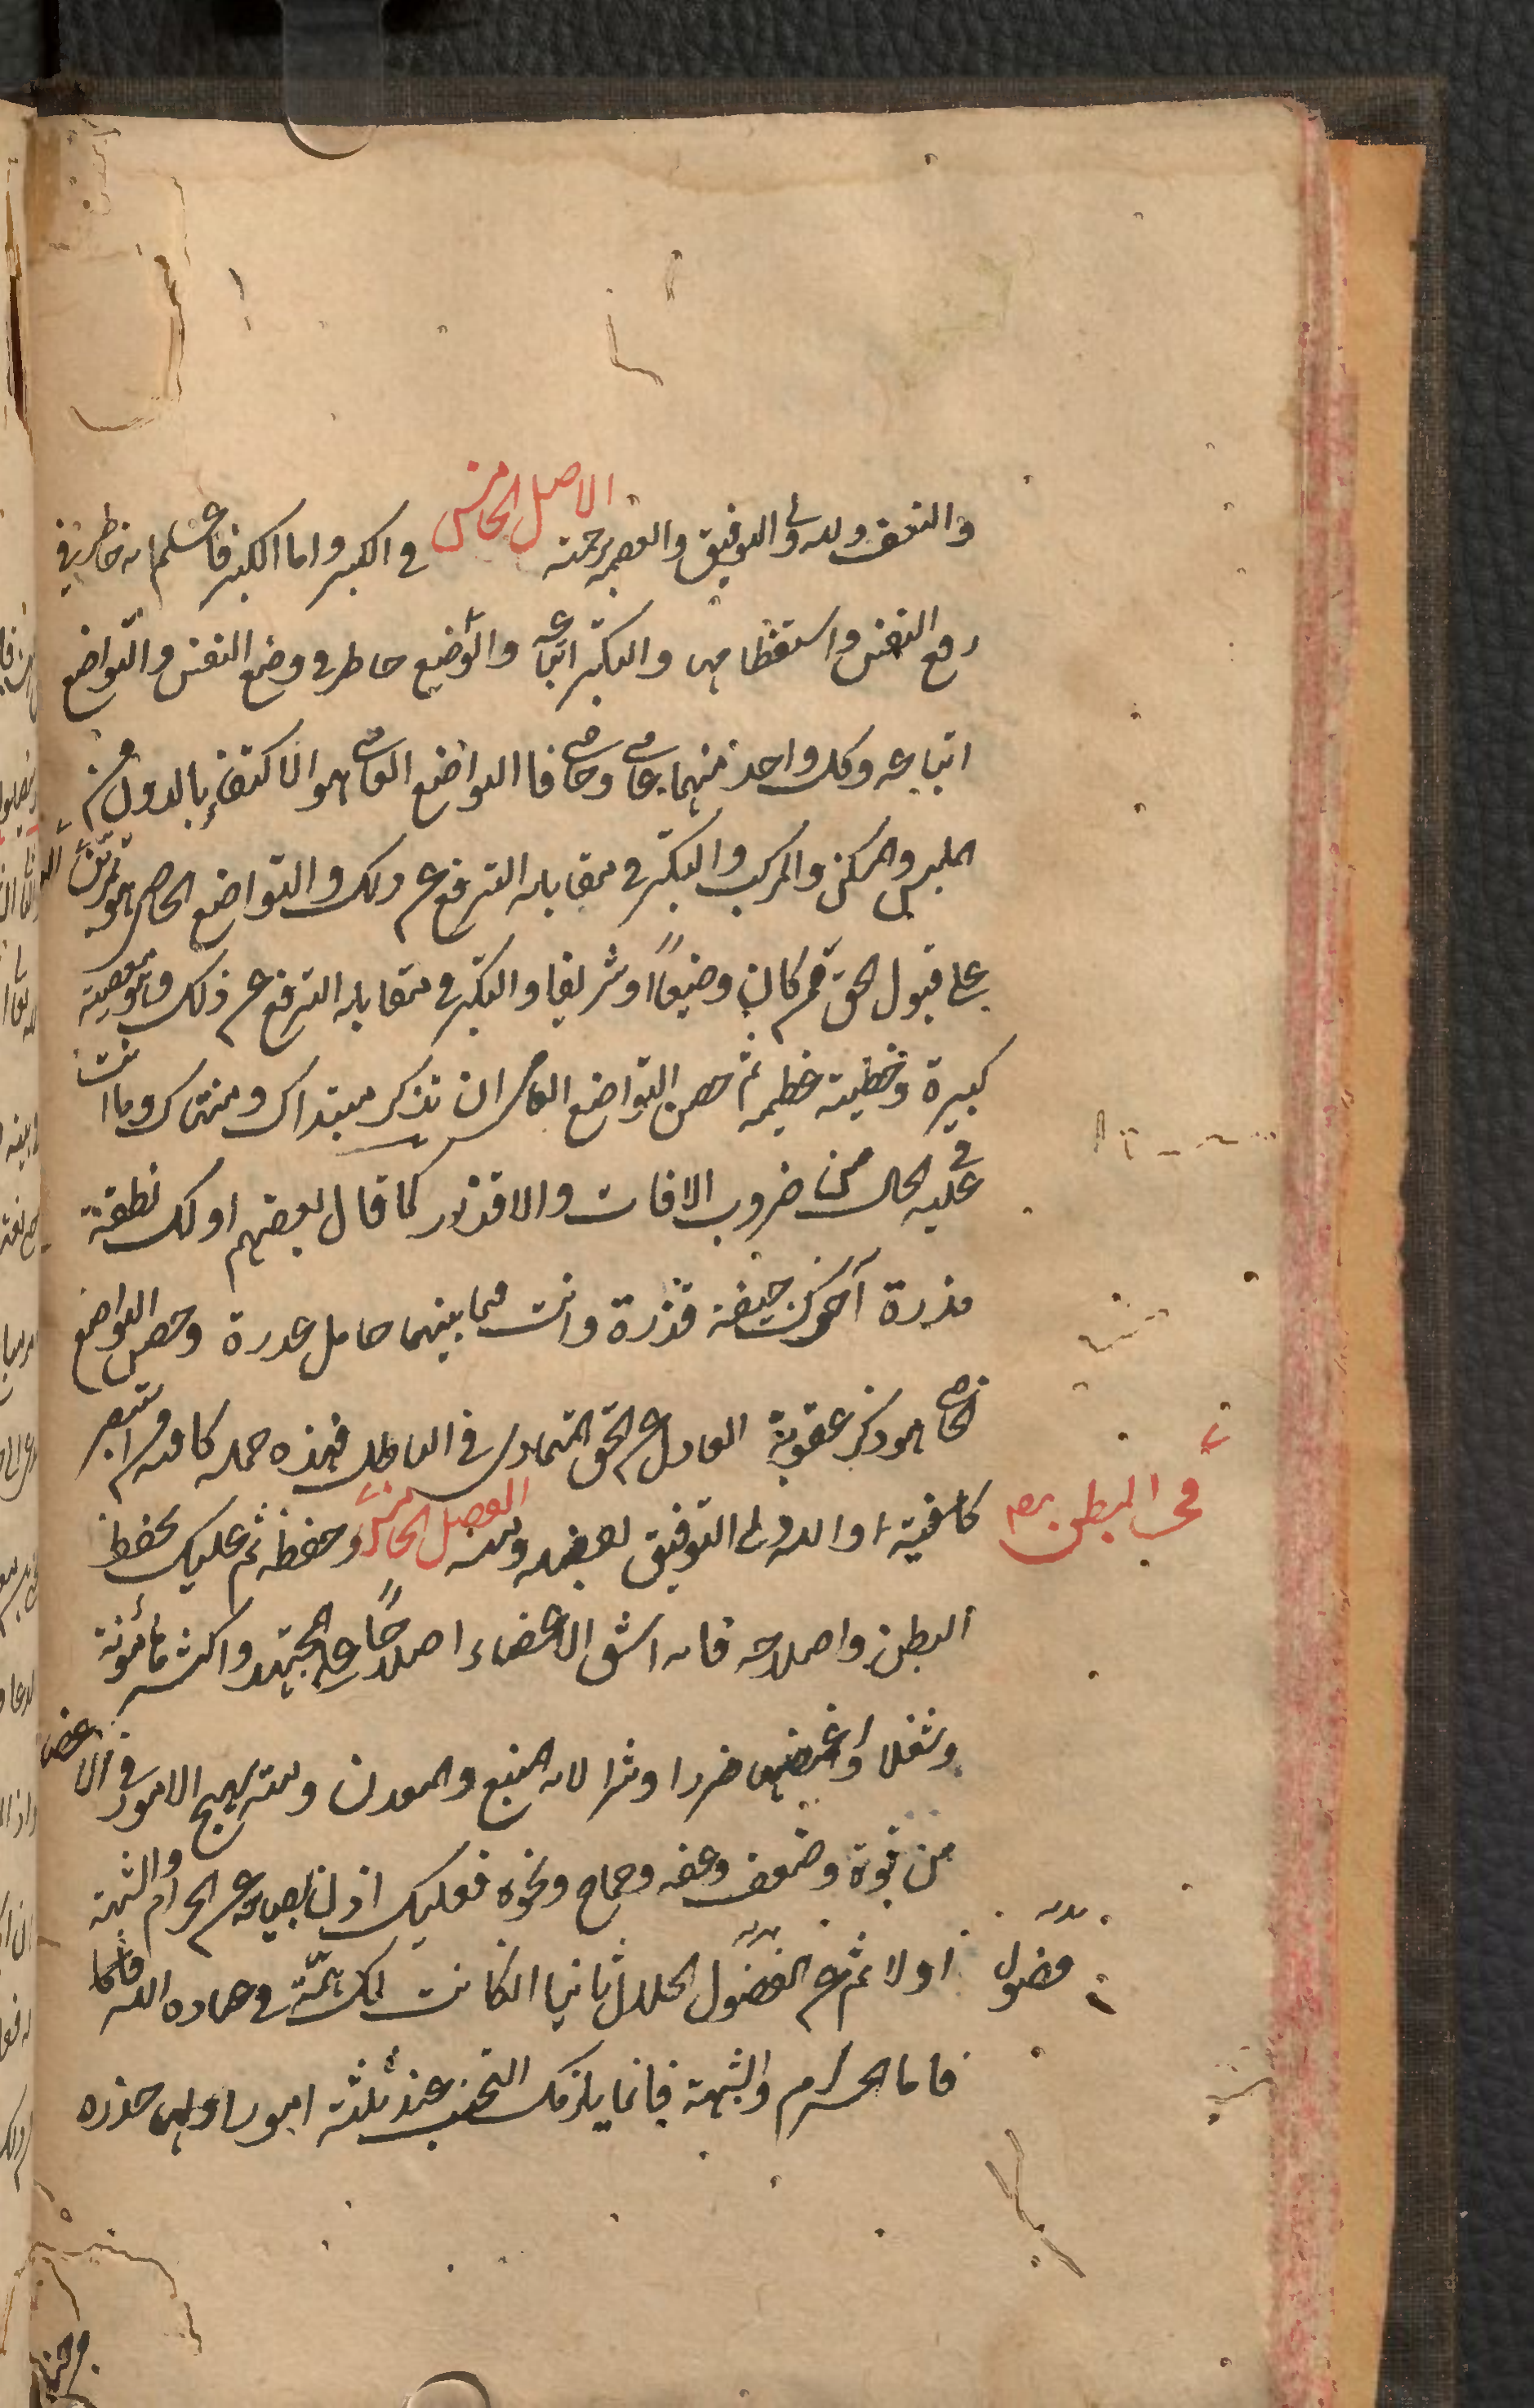 والتعسف والله ولي التوفيق والعصمة برحمته الاصل الخامس في الكبر واما الكبر فاعلم انه خاطر في
رفع النفس واستعظامها والتكبر اتباعه والوضيع خاطر في وضع النفس والتواضع
اتباعه وكل واحد منهما عامي وخاصي فا التواضع العامي هو الاكتفاء بالدون من
الملبس والمسكن والمركب والتكبر في مقابله الترفع عن ذلك والتواضع الخاص هو تمرين النفس
على قبول الحق ممن كان وضيعًا او شريفا والتكبر في مقابله الترفع عن ذلك وهو معصية
كبيرة وخطيئة عظيمه ثم حصن التواضع العامي ان تذكر مبتداك ومنتهاك وما انت
عليه في الحال من ضروب الافات والاقذار كما قال بعضهم اولك نطفة
مذرة آخرك جيفة قذرة وانت فيما بينهما حامل عذرة وحصن التواضع
الخاصي هو ذكر عقوبة العادل عن الحق المتمادي في الباطل فهذه جملة كافيه لمن استبصر
كافية والله ولي التوفيق بفضله ومنه الفصل الخامس وحفظه ثم عليك بحفظ
في البطن
البطن واصلاحه فانه اشق الاعضاء اصلاحًا على المجتهد واكثرها مؤنة
وشغلا واعظمها ضررا وشرا لانه المنبع والمعدن ومنه تهيج الامور في الاعضا
من قوة وضعف وعفة وجماح ونحوه فعليك اذن بصيانته عن الحرام والشبهة
اولا ثم عن الفضول الحلال ثانيا ان كانت لك همّة في عبادة الله
فضول
فاما الحرام والشبهة فانما يلزمك التجنب عنه ثلثة امور اولها حذره